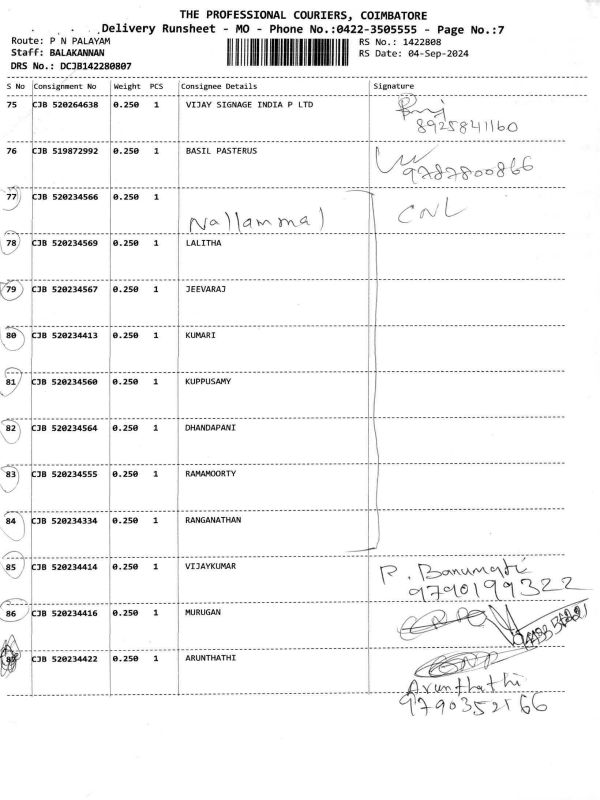 THE PROFESSIONAL COURIERS, COIMBATORE
Delivery Runsheet - MO - Phone No.:0422-3505555 - Page No.:7
Route: P N PALAYAM RS No.: 1422808
Staff: BALAKANNAN RS Date: 04-Sep-2024
DRS No.: DCJB142280807
S No Consignment No Weight PCS Consignee Details Signature
75 CJB 520264638 0.250 1 VIJAY SIGNAGE INDIA P LTD
8925841160
76 CJB 519872992 0.250 1 BASIL PASTERUS
9787800866
77 CJB 520234566 0.250 1 CNL
Nallammal
78 CJB 520234569 0.250 1 LALITHA
79 CJB 520234567 0.250 1 JEEVARAJ
80 CJB 520234413 0.250 1 KUMARI
81 CJB 520234560 0.250 1 KUPPUSAMY
82 CJB 520234564 0.250 1 DHANDAPANI
83 CJB 520234555 0.250 1 RAMAMOORTY
84 CJB 520234334 0.250 1 RANGANATHAN
85 CJB 520234414 0.250 1 VIJAYKUMAR P. Banumati
9790199322
86 CJB 520234416 0.250 1 MURUGAN
87 CJB 520234422 0.250 1 ARUNTHATHI
Arunthathi
9790352166